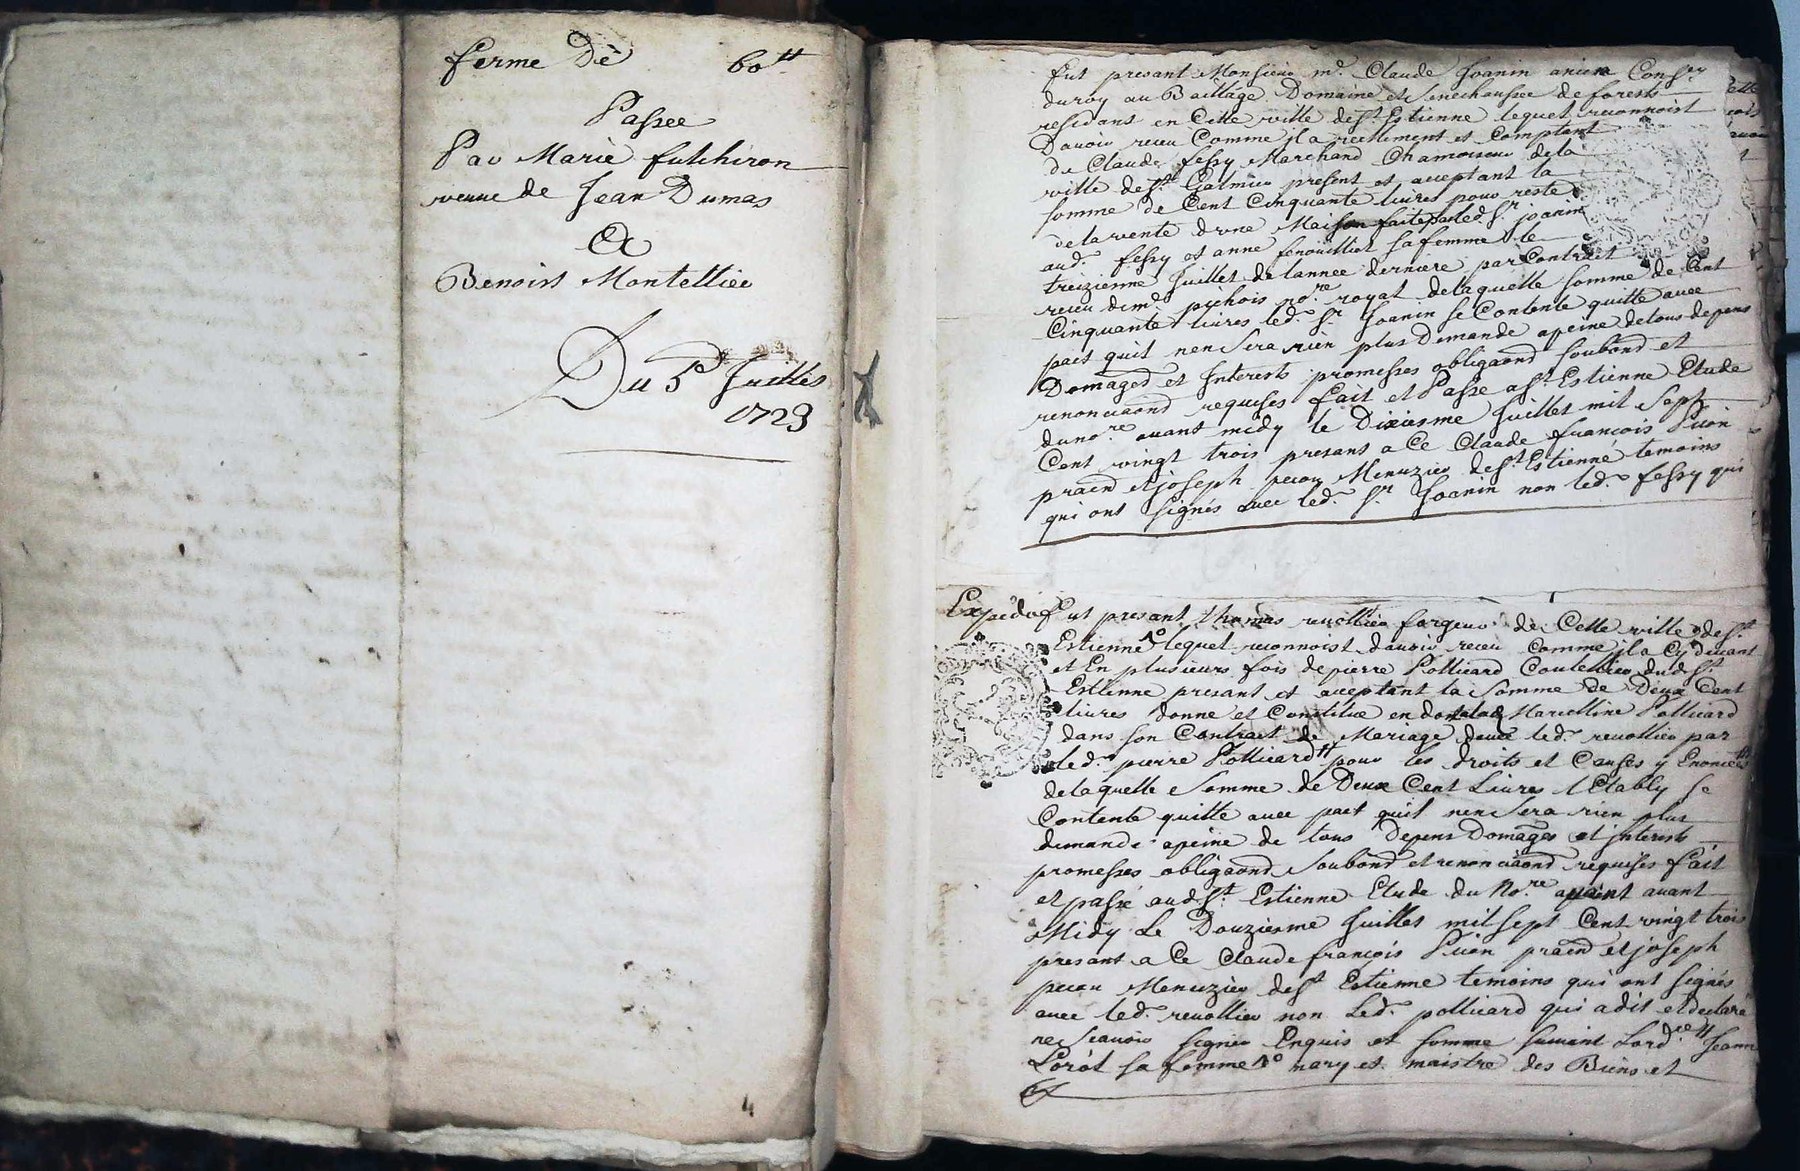 ferme De 60ᵗᵗ
Passee
Par Marie futchiron
veuve de Jean Dumas
A
Benoist Montellier
Du 5ᵉ Juillet
1723
4
fut presant Monsieur mᵉ. Claude Joanin ancien Consᵉʳ
du roy au Baillage Domaine et Senechaussee de forests
residant en Cette ville de Sᵗ Estienne lequel reconnoist
Davoir receu Comme il a reellement et Comptant
de Claude fessy Marchand Chamoiseur de la
ville de Sᵗ Galmier present et acceptant la
somme de Cent Cinquante livres pour reste
de la vente dune Maison faite par led. Sʳ joanin
aud. fessy et anne fenouillet sa femme le
treizienne Juillet de lannee derniere par Contract
receu de mᵉ pichois noʳᵉ royal de laquelle somme de Cent
Cinquante livres led. Sʳ Joanin se Contente quitte avec
pact quil nen sera rien plus Demande apeine de tous depens
Domages et Interests promesses obligaond soubond et
renonciaond requises fait et Passe a Sᵗ Estienne Etude
du noʳᵉ avant midy le Dixiesme Juillet mil Sept
Cent vingt trois presans a Ce Claude francois
pracn et joseph Menuzier de Sᵗ Estienne temoins
qui ont signés avec led. Sʳ Joanin non led. fessy qui
Expedié fut presant thomas revollier forgeur de Cette ville de Sᵗ
Estienne lequel reconnoist davoir receu Comme il a Cy devant
et En plusieurs fois de pierre Pollicard Coutellier dud Sᵗ
Estienne presant et acceptant la Somme de Deux Cent
livres donne et Constitue en dot a lad Marcelline Pollicard
dans son Contract de Mariage avec led. revollier par
led. pierre Pollicard pour les droits et Causes y Enoncées
de laquelle Somme de Deux Cent Livres l Etably se
Contente quitte avec pact quil nen sera rien plus
demande apeine de tous Depens Domages et interests
promesses obligaond Soubond et renonciaond requises fait
et passé aud Sᵗ. Estienne Etude du Noʳᵉ avant
Midy Le Douziesme Juillet mil sept Cent vingt trois
presant a Ce Claude francois pracn et joseph
Menuzier de Sᵗ Estienne temoins qui ont signés
avec led. revollier non Led. pollicard qui a dit et declare
ne scavoir signer Enquis et somme suivant Lordᶜᵉ Jeanne
sa femme mary et maistre des Biens et